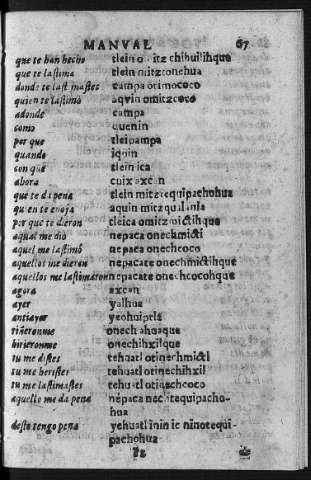 MANVAL 67
que te han hecho tlein o itz chihuilihque
que te lastima tlein mitztonehua
donde te lastimastes campa otimococo
quien te lastimo aquin omitzcoco
adonde campa
como quenin
por que tleipampa
quando iquin
con que tlein ica
ahora cuix axcan
que te da pena tlein mitztequipachohua
quien te enoja aquin mitzqualania
por que te dieron tleica omitzmictihque
aquel me dio nepaca onechmicti
aquel me lastimò nepaca onechcoco
aquellos me dieron nepacate onechmictihque
aquellos me lastimaron nepacate onechcocohque
agora axcan
ayer yalhua
antiayer yeohuiptla
riñeronme onechahuaque
hirieronme onechihxilque
tu me distes tehuatl otinechmictl
tu me heristes tehuatl otinechihxil
tu me lastimastes tehuatl otinechcoco
aquello me da pena nepaca nechtequipacho-
hua
deste tengo pena yehuatl inin ic ninotequi-
pachohua